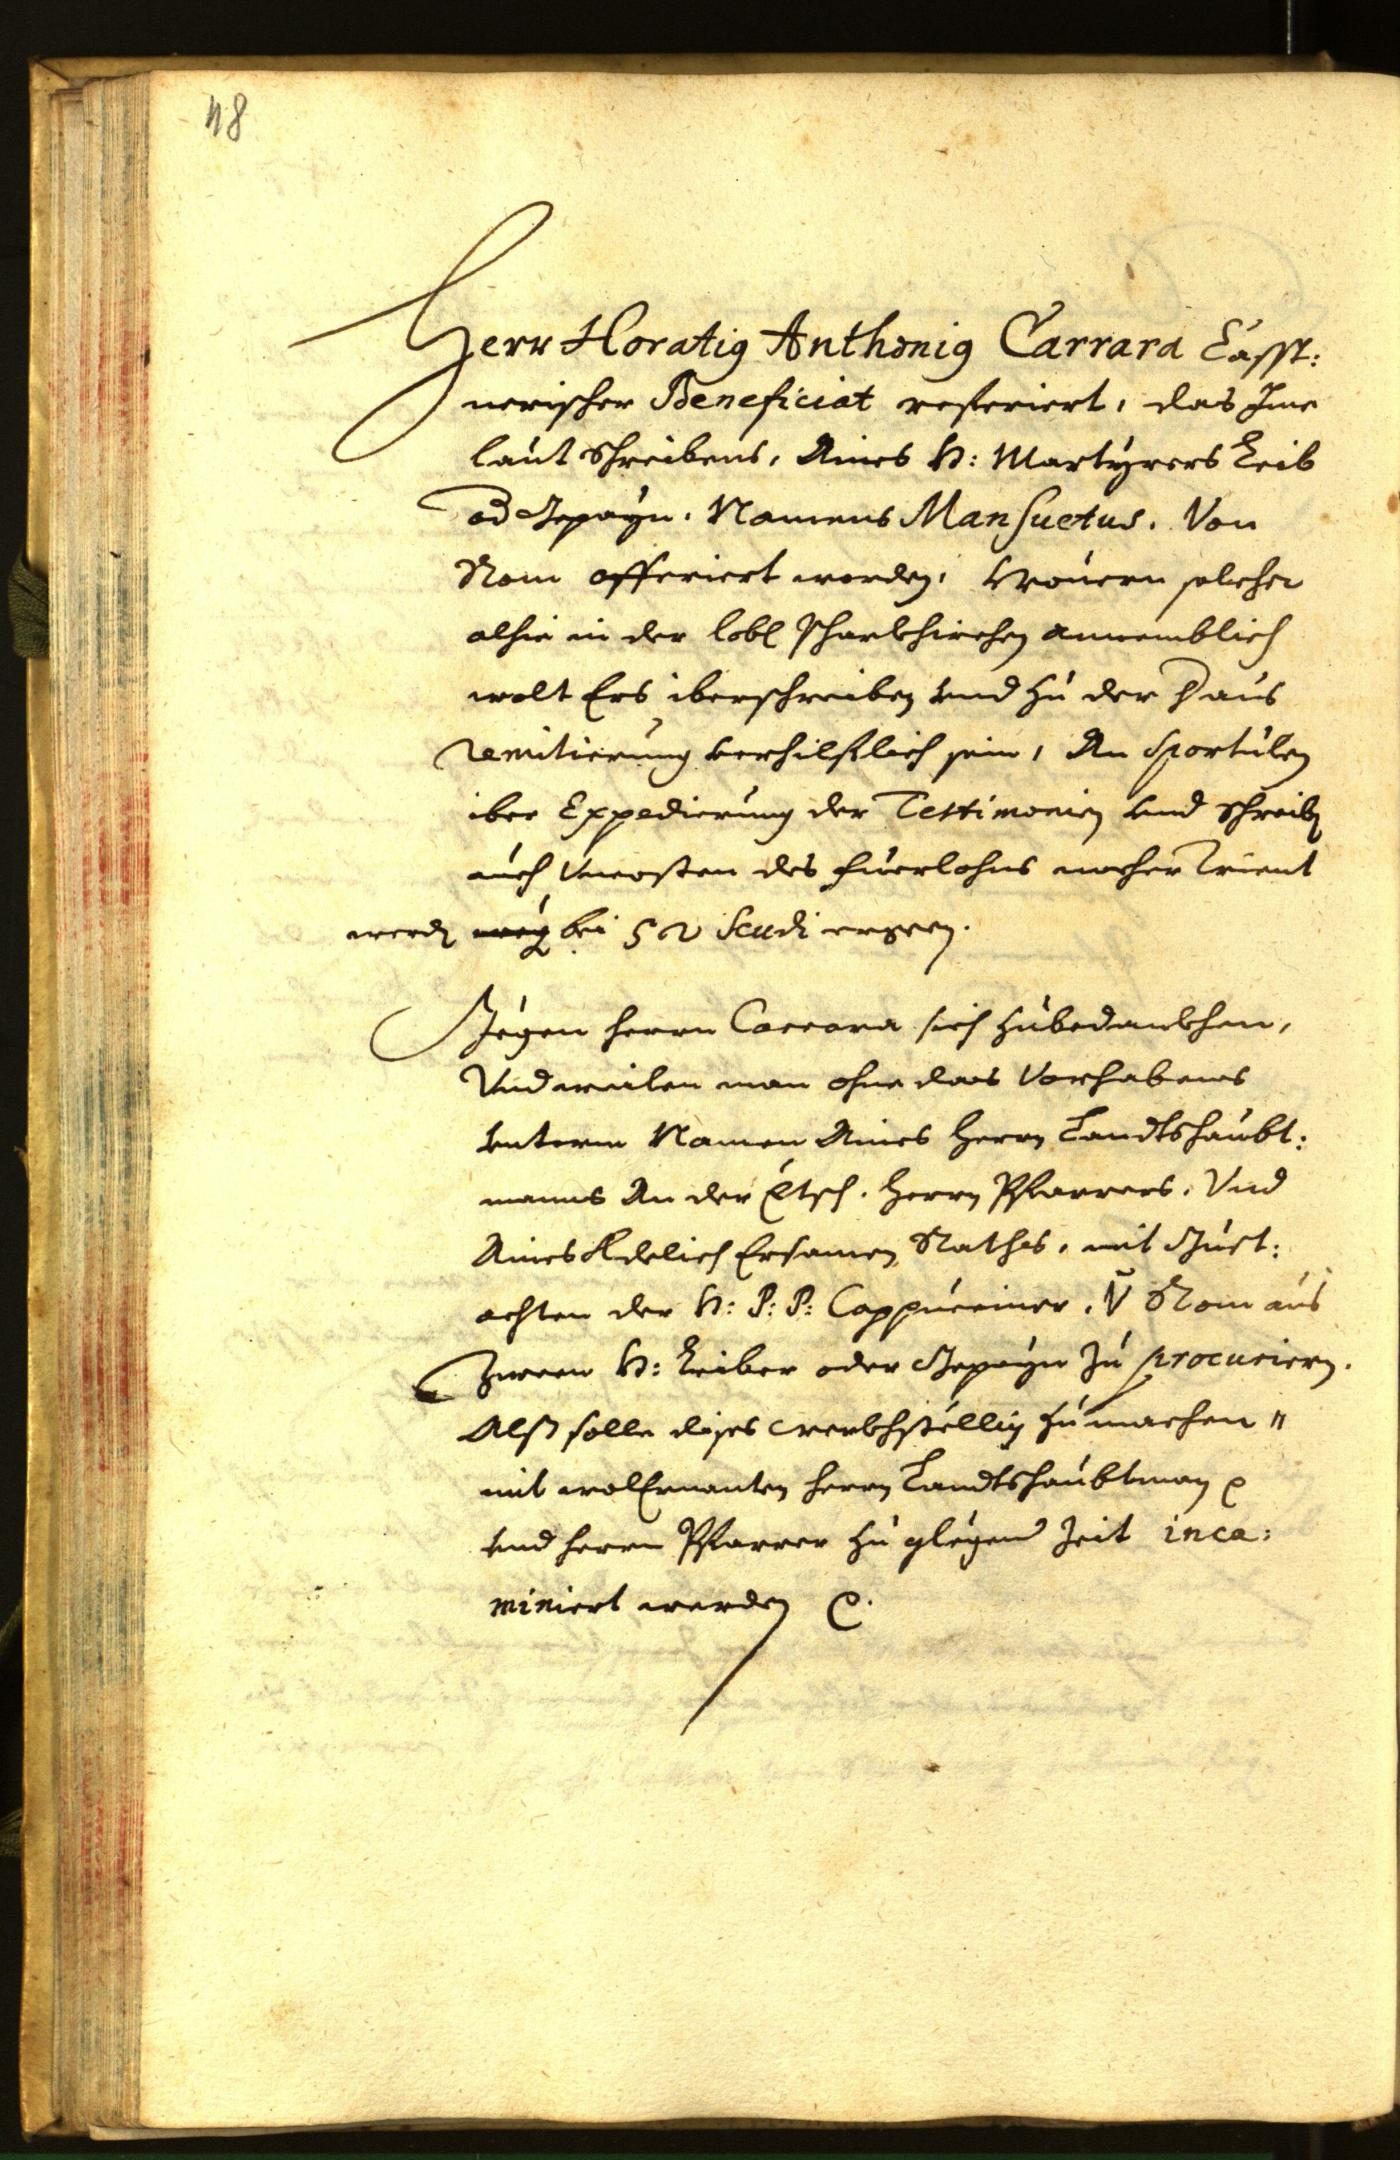 48
Herr Horatius Anthonius Carrara Casst:
nerischer Beneficiat referiert, das Ime
laut schreibens, Aines H: Martÿrers Leib
od Gepaÿn, Namens Mansuetus. Von
Rom offeriert worden, wouern solcher
alhie in der lobl Pfarkhirchen annemblich
wolt Ers iberschreiben vnd zu der H aus
remitierung verhilflich sein, An Sportulen
iber Expedierung der Testimonien vnd schreib
auch Vncosten des fuerlohns nacher Trient
werdn bei 52 Scudi ergeen.
Gegen herrn Carrara sich zubedankhen,
Vnd weilen man ohne das Vorhabens
vnterm Namen Aines Herrn Landtshaubt:
manns An der Etsch. Herrn Pfarrers. Vnd
Aines Adelich Ersamen Rathes, mit Guet:
achten der H: P: P: Cappuciner. V Rom aus
Zween H: Leiber oder Gepaÿn zu procuriern.
Alß solle dises werkhstellig zumachen
mit wolErnanten herrn Landtshaubtman
vnd herrn Pfarrer zu glegend Zeit inca:
miniert werden